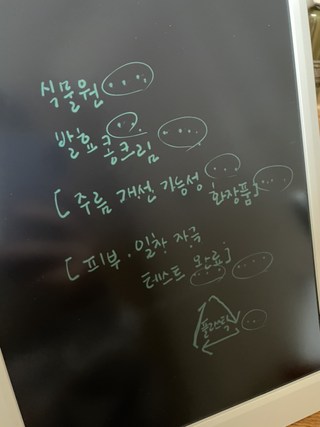 식물원
발효콩크림
[주름 개선 기능성
화장품]
[피부·일차 자극
테스트 완료]
플라스틱